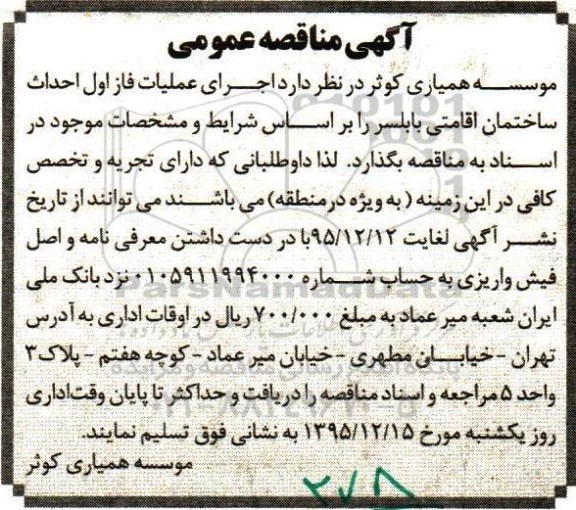 آگهی مناقصه عمومی
موسسه همیاری کوثر در نظر دارد اجرای عملیات فاز اول احداث
ساختمان اقامتی بابلسر را بر اساس شرایط و مشخصات موجود در
اسناد به مناقصه بگذارد. لذا داوطلبانی که دارای تجربه و تخصص
کافی در این زمینه (به ویژه در منطقه) می باشند می توانند از تاریخ
نشر آگهی لغایت ۹۵/۱۲/۱۲ با در دست داشتن معرفی نامه و اصل
فیش واریزی به حساب شماره ۰۱۰۵۹۱۱۹۹۴۰۰۰ نزد بانک ملی
ایران شعبه میر عماد به مبلغ ۷۰۰/۰۰۰ ریال در اوقات اداری به آدرس
تهران - خیابان مطهری - خیابان میر عماد - کوچه هفتم - پلاک ۳
واحد ۵ مراجعه و اسناد مناقصه را دریافت و حداکثر تا پایان وقت اداری
روز یکشنبه مورخ ۱۳۹۵/۱۲/۱۵ به نشانی فوق تسلیم نمایند.
موسسه همیاری کوثر
۲۷۸
ParsNamadData